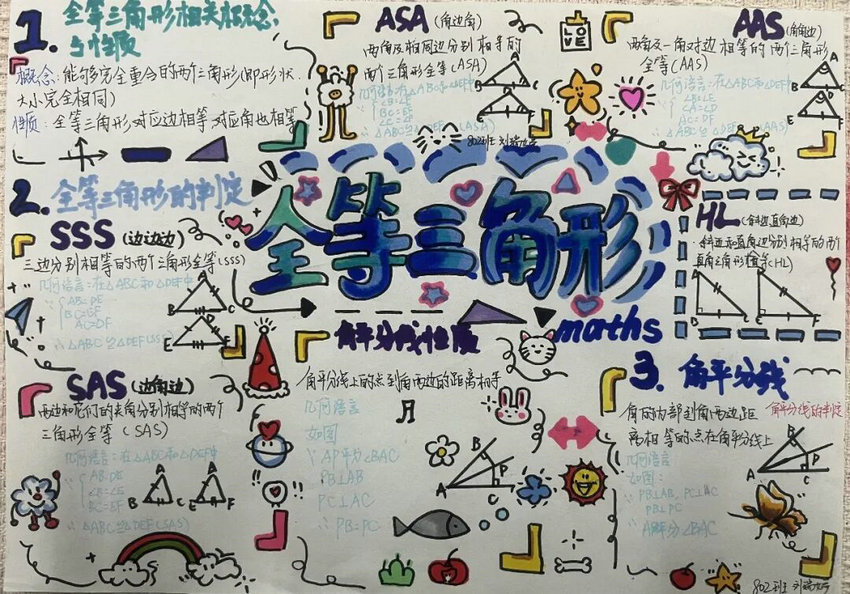 1. 全等三角形相关概念,
与性质
概念:能够完全重合的两个三角形(即形状、
大小完全相同)
性质:全等三角形对应边相等,对应角也相等
ASA(角边角)
两角及相同边分别相等的
两个三角形全等(ASA)
几何语言:在△ABC和△DEF中
∠B=∠E
BC=EF
∴△ABC≌△DEF(ASA)
A
B
C
D
E
F
802班
LOVE
AAS(角角边)
两角及一角对边相等的两个三角形
全等(AAS)
几何语言:在△ABC和△DEF中
∠B=∠E
∴△ABC≌△DEF(AAS)
A
B
C
D
E
F
2. 全等三角形的判定
SSS(边边边)
三边分别相等的两个三角形全等(SSS)
几何语言:在△ABC和△DEF中
AB=DE
BC=EF
AC=DF
∴△ABC≌△DEF(SSS)
A
B
C
D
E
F
全等三角形
maths
HL(斜边直角边)
斜边和直角边分别相等的两个
直角三角形全等(HL)
A
B
C
D
E
F
SAS(边角边)
两边和它们的夹角分别相等的两个
三角形全等(SAS)
几何语言:在△ABC和△DEF中
AB=DE
∠B=∠E
BC=EF
∴△ABC≌△DEF(SAS)
A
B
C
D
E
F
角平分线性质
角平分线上的点到角两边的距离相等
几何语言
如图
∵AP平分∠BAC
PB⊥AB
PC⊥AC
∴PB=PC
A
B
P
C
3. 角平分线
角平分线的判定
角的内部到角两边距
离相等的点在角平分线上
几何语言
如图:
∵PB⊥AB, PC⊥AC
∴AP平分∠BAC
A
B
P
C
802班